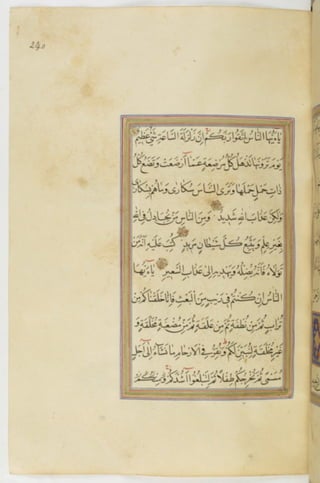 240
يا ايها الناس اتقوا ربكم ان زلزلة الساعة شئ عظيم
يوم ترونها تذهل كل مرضعة عما ارضعت وتضع كل
ذات حمل حملها وترى الناس سكارى وما هم بسكارى
ولكن عذاب الله شديد ومن الناس من يجادل في الله
بغير علم ويتبع كل شيطان مريد كتب عليه انه من
تولاه فانه يضله ويهديه الى عذاب السعير يا ايها
الناس ان كنتم في ريب من البعث فانا خلقناكم من
تراب ثم من نطفة ثم من علقة ثم من مضغة مخلقة و
غير مخلقة لنبين لكم ونقر في الارحام ما نشاء الى اجل
مسمى ثم نخرجكم طفلا ثم لتبلغوا اشدكم ومنكم